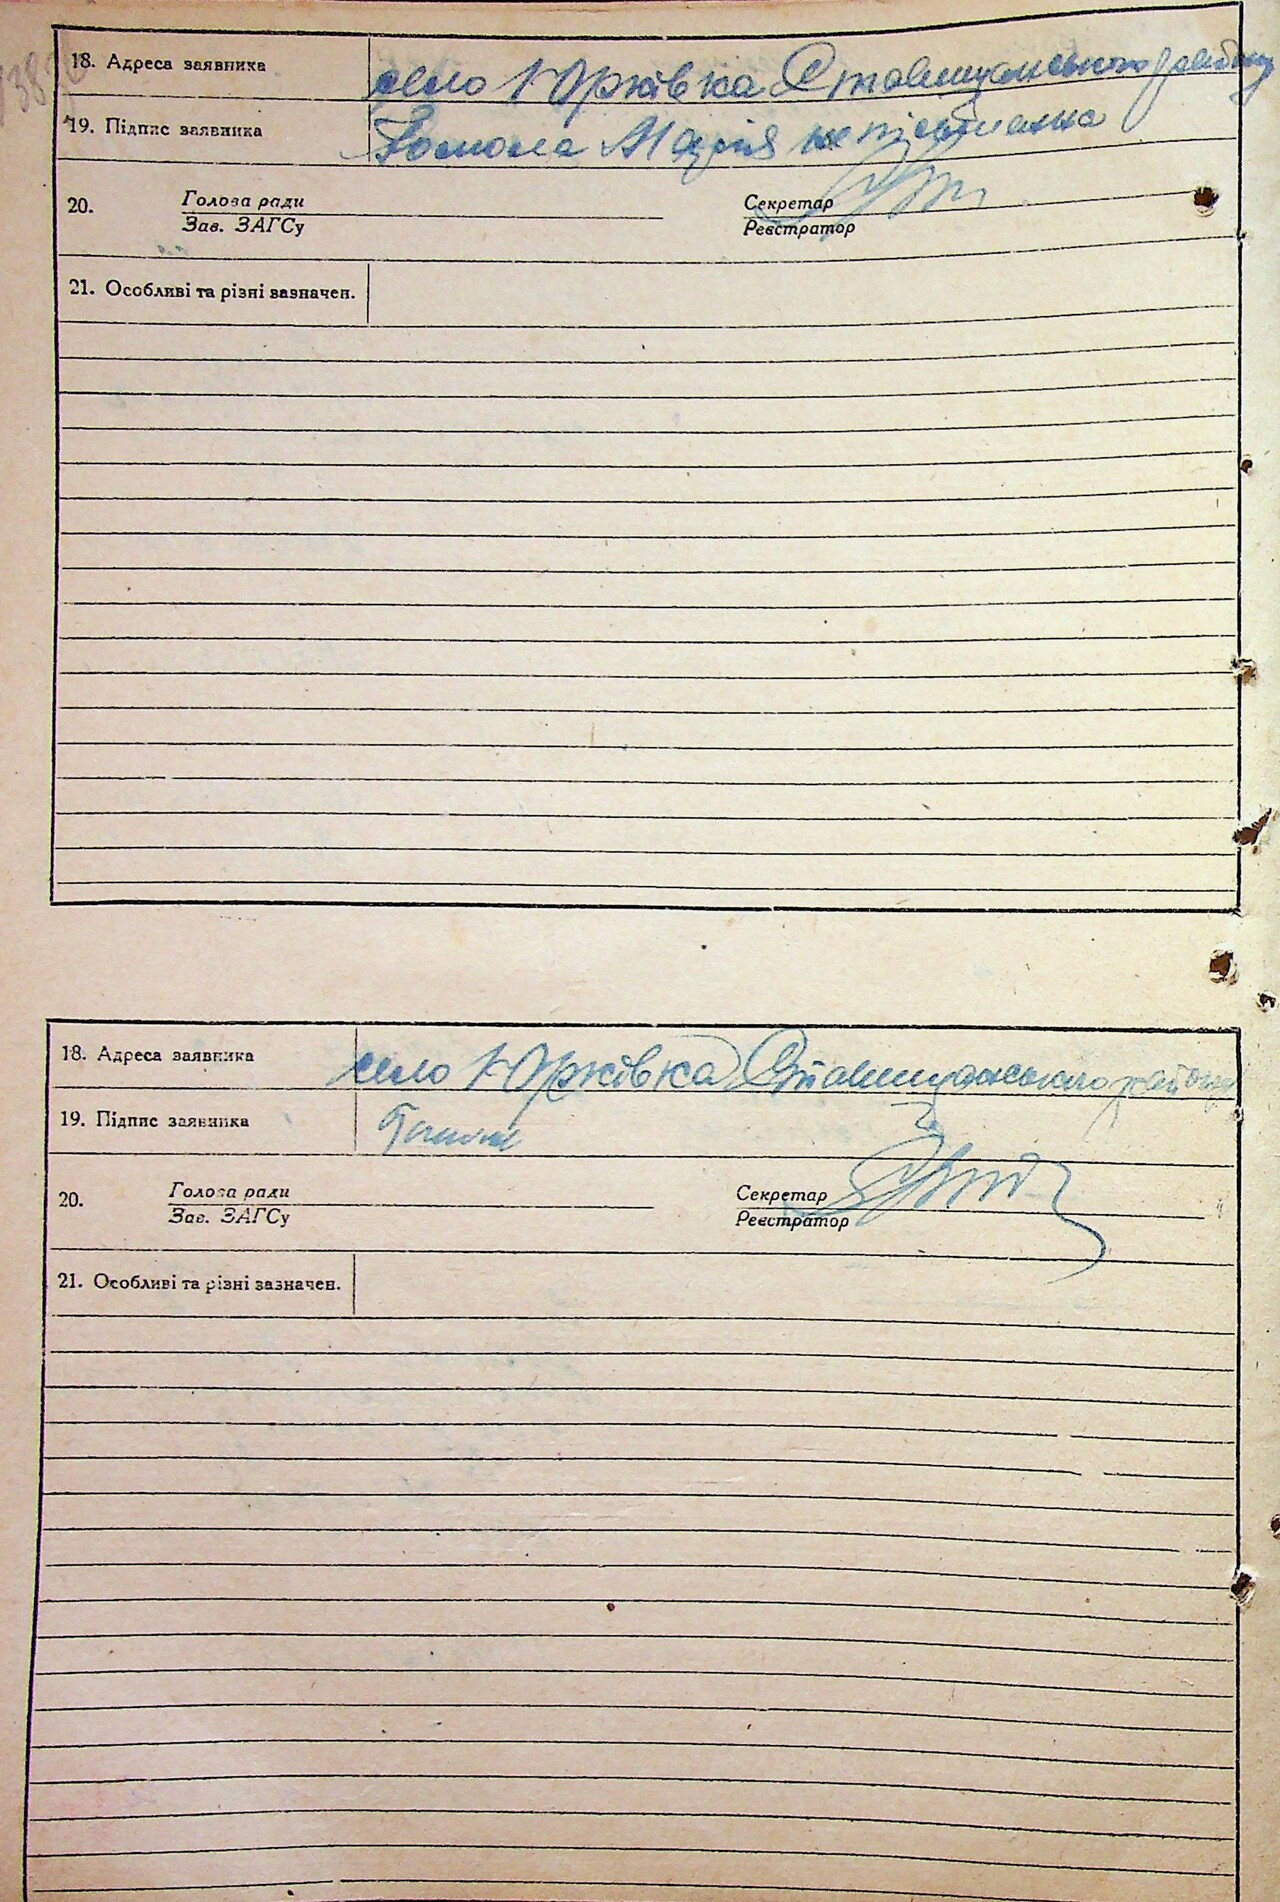 18. Адреса заявника село Юрківка Ставищанського району
19. Підпис заявника Марія не підписана
20. Голова ради Секретар
Зав. ЗАГСу Реєстратор
21. Особливі та різні зазначен.
18. Адреса заявника село Юрківка Ставищанського району
19. Підпис заявника
20. Голова ради Секретар
Зав. ЗАГСу Реєстратор
21. Особливі та різні зазначен.